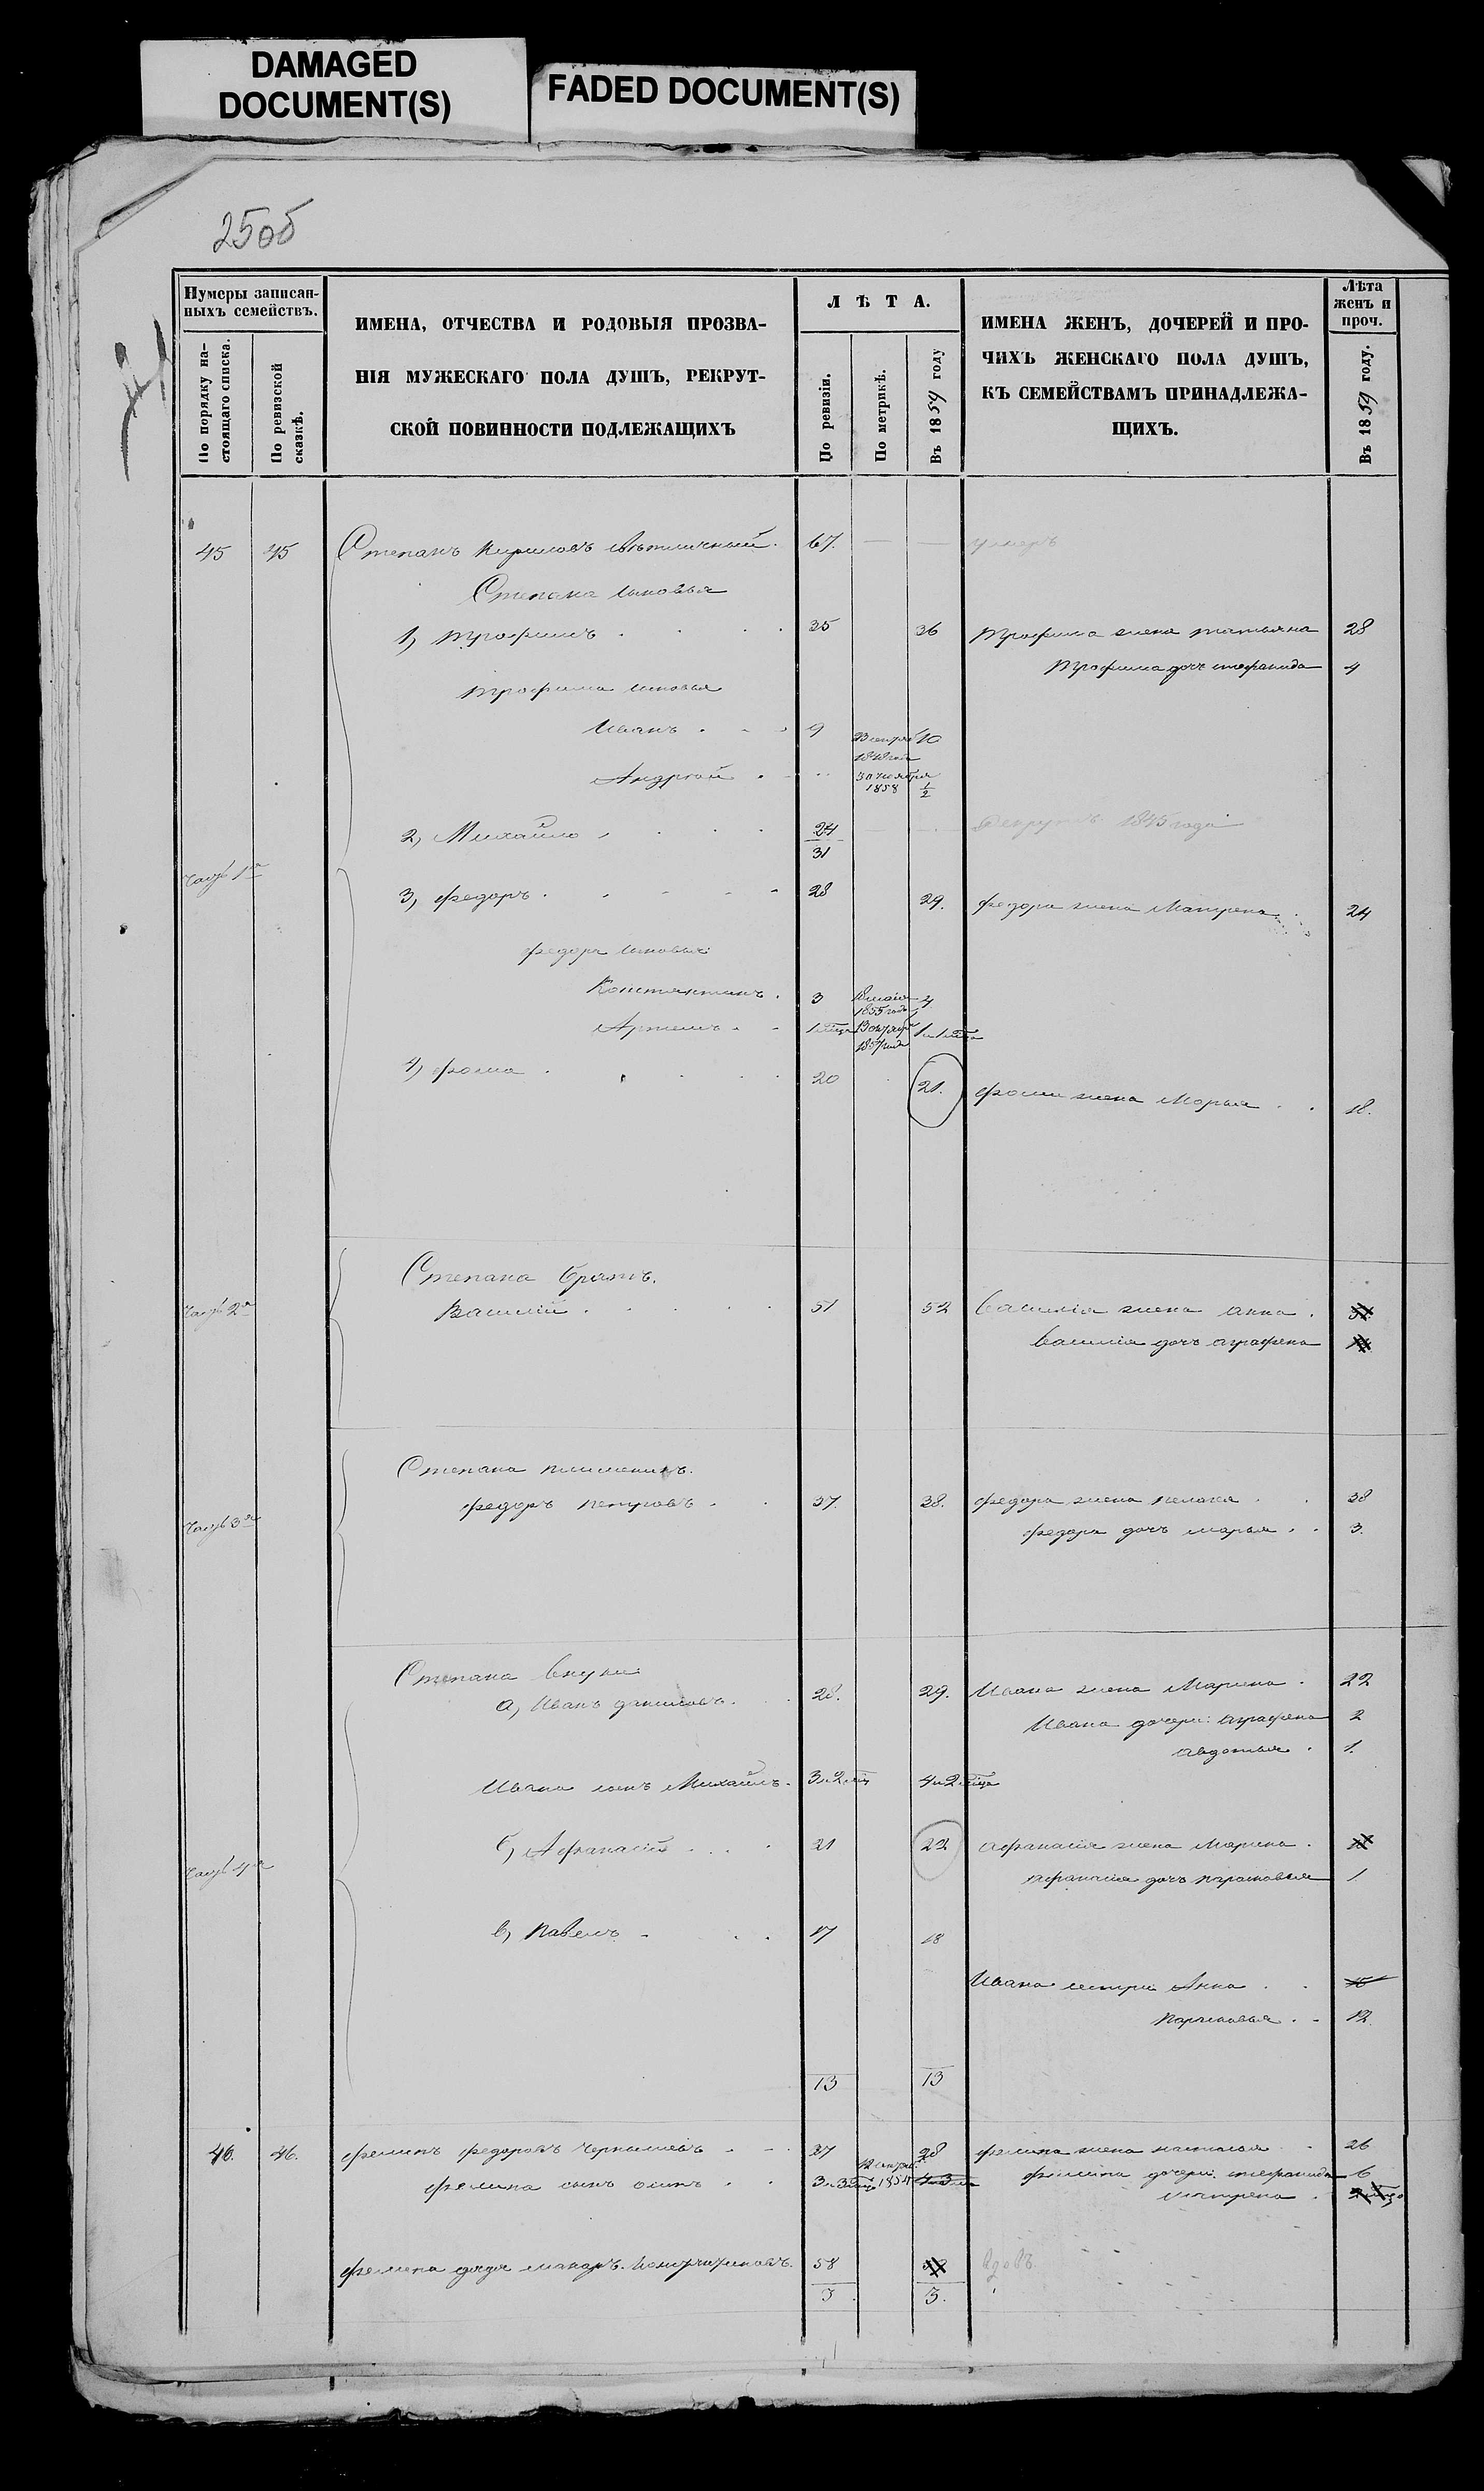 DAMAGED
DOCUMENT(S)
FADED DOCUMENT(S)
25об
Нумеры записан-
ныхъ семействъ.
По порядку на-
стоящаго списка.
По ревизской
сказкѣ.
ИМЕНА, ОТЧЕСТВА И РОДОВЫЯ ПРОЗВА-
НІЯ МУЖЕСКАГО ПОЛА ДУШЪ, РЕКРУТ-
СКОЙ ПОВИННОСТИ ПОДЛЕЖАЩИХЪ
ЛѢТА.
По ревизіи.
По метрикѣ.
Въ 1859 году
ИМЕНА ЖЕНЪ, ДОЧЕРЕЙ И ПРО-
ЧИХЪ ЖЕНСКАГО ПОЛА ДУШЪ,
КЪ СЕМЕЙСТВАМЪ ПРИНАДЛЕЖА-
ЩИХЪ.
Лѣта
женъ и
проч.
Въ 1859 году.
45 45 Степанъ Кириловъ 67. — — умеръ
Степана сыновья
1, Трофимъ 35 36 Трофима жена Татьяна 28
Трофима дочь Стефанида 4
Трофима сыновья
Иванъ 9 10
Андрей 30 ноября 1858 1/2
2, Михайло 24 31 — — Рекрутъ 1845 года
Часть 1я
3, Федоръ 28 29. Федора жена Матрена 24
Федора сыновья
Константинъ 3 18 маія 1855 года 4
Артемъ 1 мѣца 13 октября 1857 года 1 и 1 мѣца
4, Фома 20 21. Фомы жена Марья 18.
Степана братъ.
Часть 2я
Василій 51 52 Василія жена Анна
Василія дочь Аграфена
Степана племянникъ.
Федоръ Петровъ 37. 38. Федора жена Пелагея 38
Часть 3я
Федора дочь Марья 3.
Степана внуки
а, Иванъ Даниловъ. 28. 29. Ивана жена Марина 22
Ивана дочери: Аграфена 2
Авдотья 1.
Ивана сынъ Михайлъ. 3 и 2 мѣц 4 и 2 мѣца
б, Афанасій 21 22 Афанасія жена Марина
Часть 4я
Афанасія дочь Парасковья 1
в, Павелъ 17 18
Ивана сестры Анна 15
Парасковья 12.
13 13
46. 46. Филипъ Федоровъ Чернышевъ 27 28 Филипа жена Наталья 26
Филипа сынъ Осипъ 3 и 3 мѣца 1854 Филипа дочери: Стефанида 6
Матрена
Филипа дядя Макаръ. 58 вдовъ
3 3.